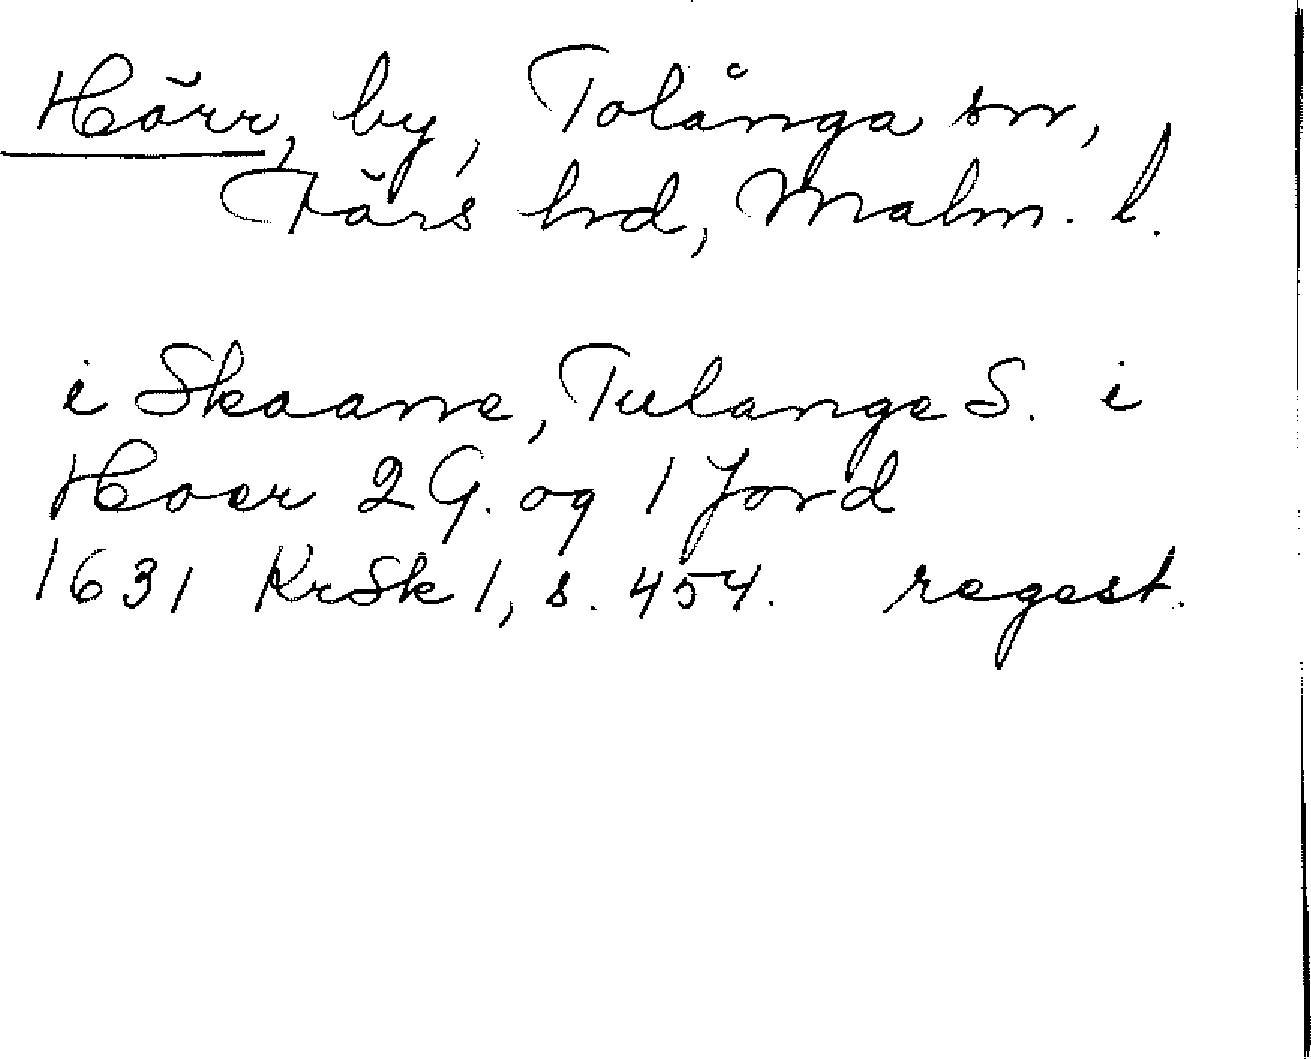 Hörr, by, Tolånga sn,
Färs hrd, Malm. l.
i Skaane, Tulange S. i
Hoer 2 G. og 1 Jord
1631 KrSk 1, s. 454. regest.